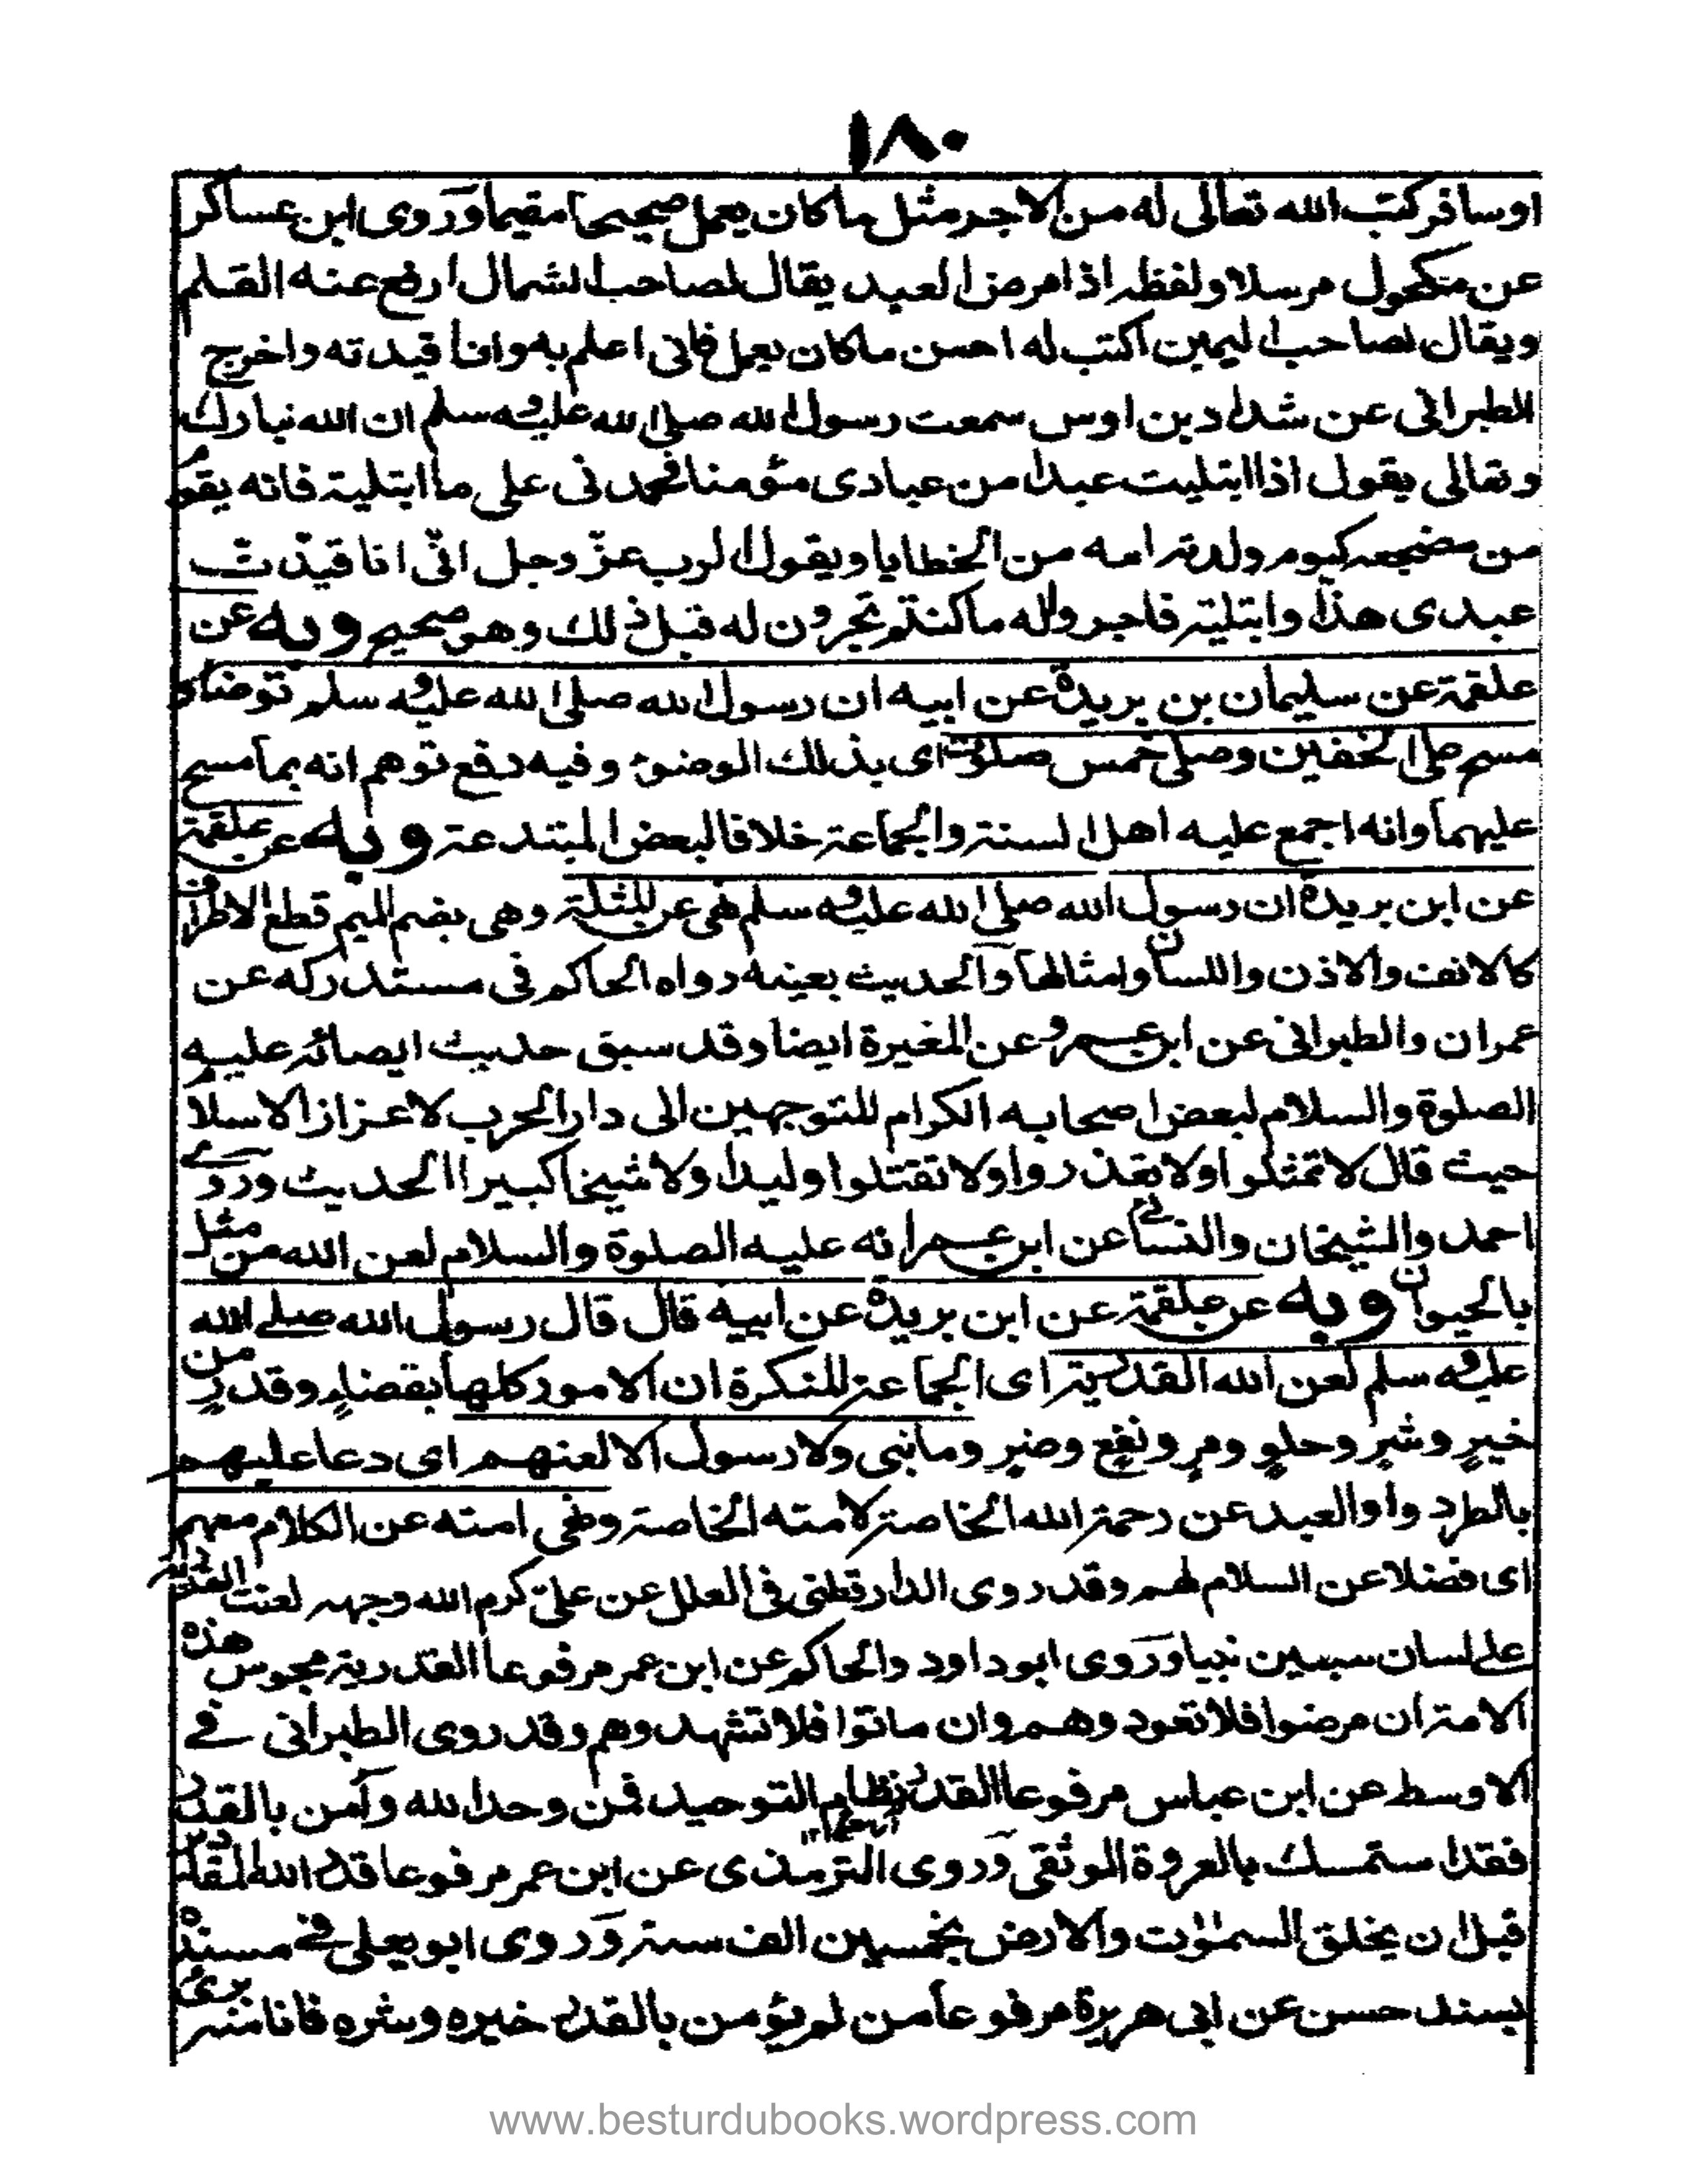 ١٨٠
اوسافر كتب الله تعالى له من الاجر مثل ما كان يعمل صحيحا مقيما وروى ابن عساكر
عن مكحول مرسلا ولفظه اذا مرض العبد يقال لصاحب الشمال ارفع عنه القلم
ويقال لصاحب اليمين اكتب له احسن ما كان يعمل فانى اعلم به وانا قيدته واخرج
الطبرانى عن شداد بن اوس سمعت رسول الله صلى الله عليه وسلم ان الله تبارك
وتعالى يقول اذا ابتليت عبدا من عبادى مؤمنا فحمدنى على ما ابتليته فانه يقوم
من مضجعه كيوم ولدته امه من الخطايا ويقول الرب عز وجل انى انا قيدت
عبدى هذا وابتليته فاجروا له ما كنتم تجرون له قبل ذلك وهو صحيح وبه عن
علقمة عن سليمان بن بريدة عن ابيه ان رسول الله صلى الله عليه وسلم توضأ و
مسح على الخفين وصلى خمس صلوت اى بذلك الوضوء وفيه دفع توهم انه بما مسح
عليهما وانه اجمع عليه اهل السنة والجماعة خلافا لبعض المبتدعة وبه عن علقمة
عن ابن بريدة ان رسول الله صلى الله عليه وسلم نهى عن المثلة وهى بضم الميم قطع الاطراف
كالانف والاذن واللسان وامثالها والحديث بعينه رواه الحاكم فى مستدركه عن
عمران والطبرانى عن ابن عمر وعن المغيرة ايضا وقد سبق حديث ايصائه عليه
الصلوة والسلام لبعض اصحابه الكرام للتوجهين الى دار الحرب لاعزاز الاسلام
حيث قال لا تمثلوا ولا تغدروا ولا تقتلوا وليدا ولا شيخا كبيرا الحديث وروى
احمد والشيخان والنسائى عن ابن عمر انه عليه الصلوة والسلام لعن الله من مثل
بالحيوان وبه عن علقمة عن ابن بريدة عن ابيه قال قال رسول الله صلى الله
عليه وسلم لعن الله القدرية اى الجماعة المنكرة ان الامور كلها بقضاء وقدر من
خير وشر وحلو ومر ونفع وضر وما نبى ولا رسول الا لعنهم اى دعا عليهم
بالطرد واوالعبد عن رحمة الله الخاصة لامته الخاصة ونهى امته عن الكلام معهم
اى فضلا عن السلام لهم وقد روى الدارقطنى فى العلل عن على كرم الله وجهه لعنت القدرية
على لسان سبعين نبيا وروى ابوداود والحاكم عن ابن عمر مرفوعا القدرية مجوس هذه
الامة ان مرضوا فلا تعودوهم وان ماتوا فلا تشهدوهم وقد روى الطبرانى فى
الاوسط عن ابن عباس مرفوعا القدر نظام التوحيد فمن وحد الله وآمن بالقدر
فقد استمسك بالعروة الوثقى وروى الترمذى عن ابن عمر مرفوعا قدر الله المقادير
قبل ان يخلق السموت والارض بخمسين الف سنة وروى ابو يعلى فى مسنده
بسند حسن عن ابى هريرة مرفوعا من لم يؤمن بالقدر خيره وشره فانا منه برئ
www.besturdubooks.wordpress.com